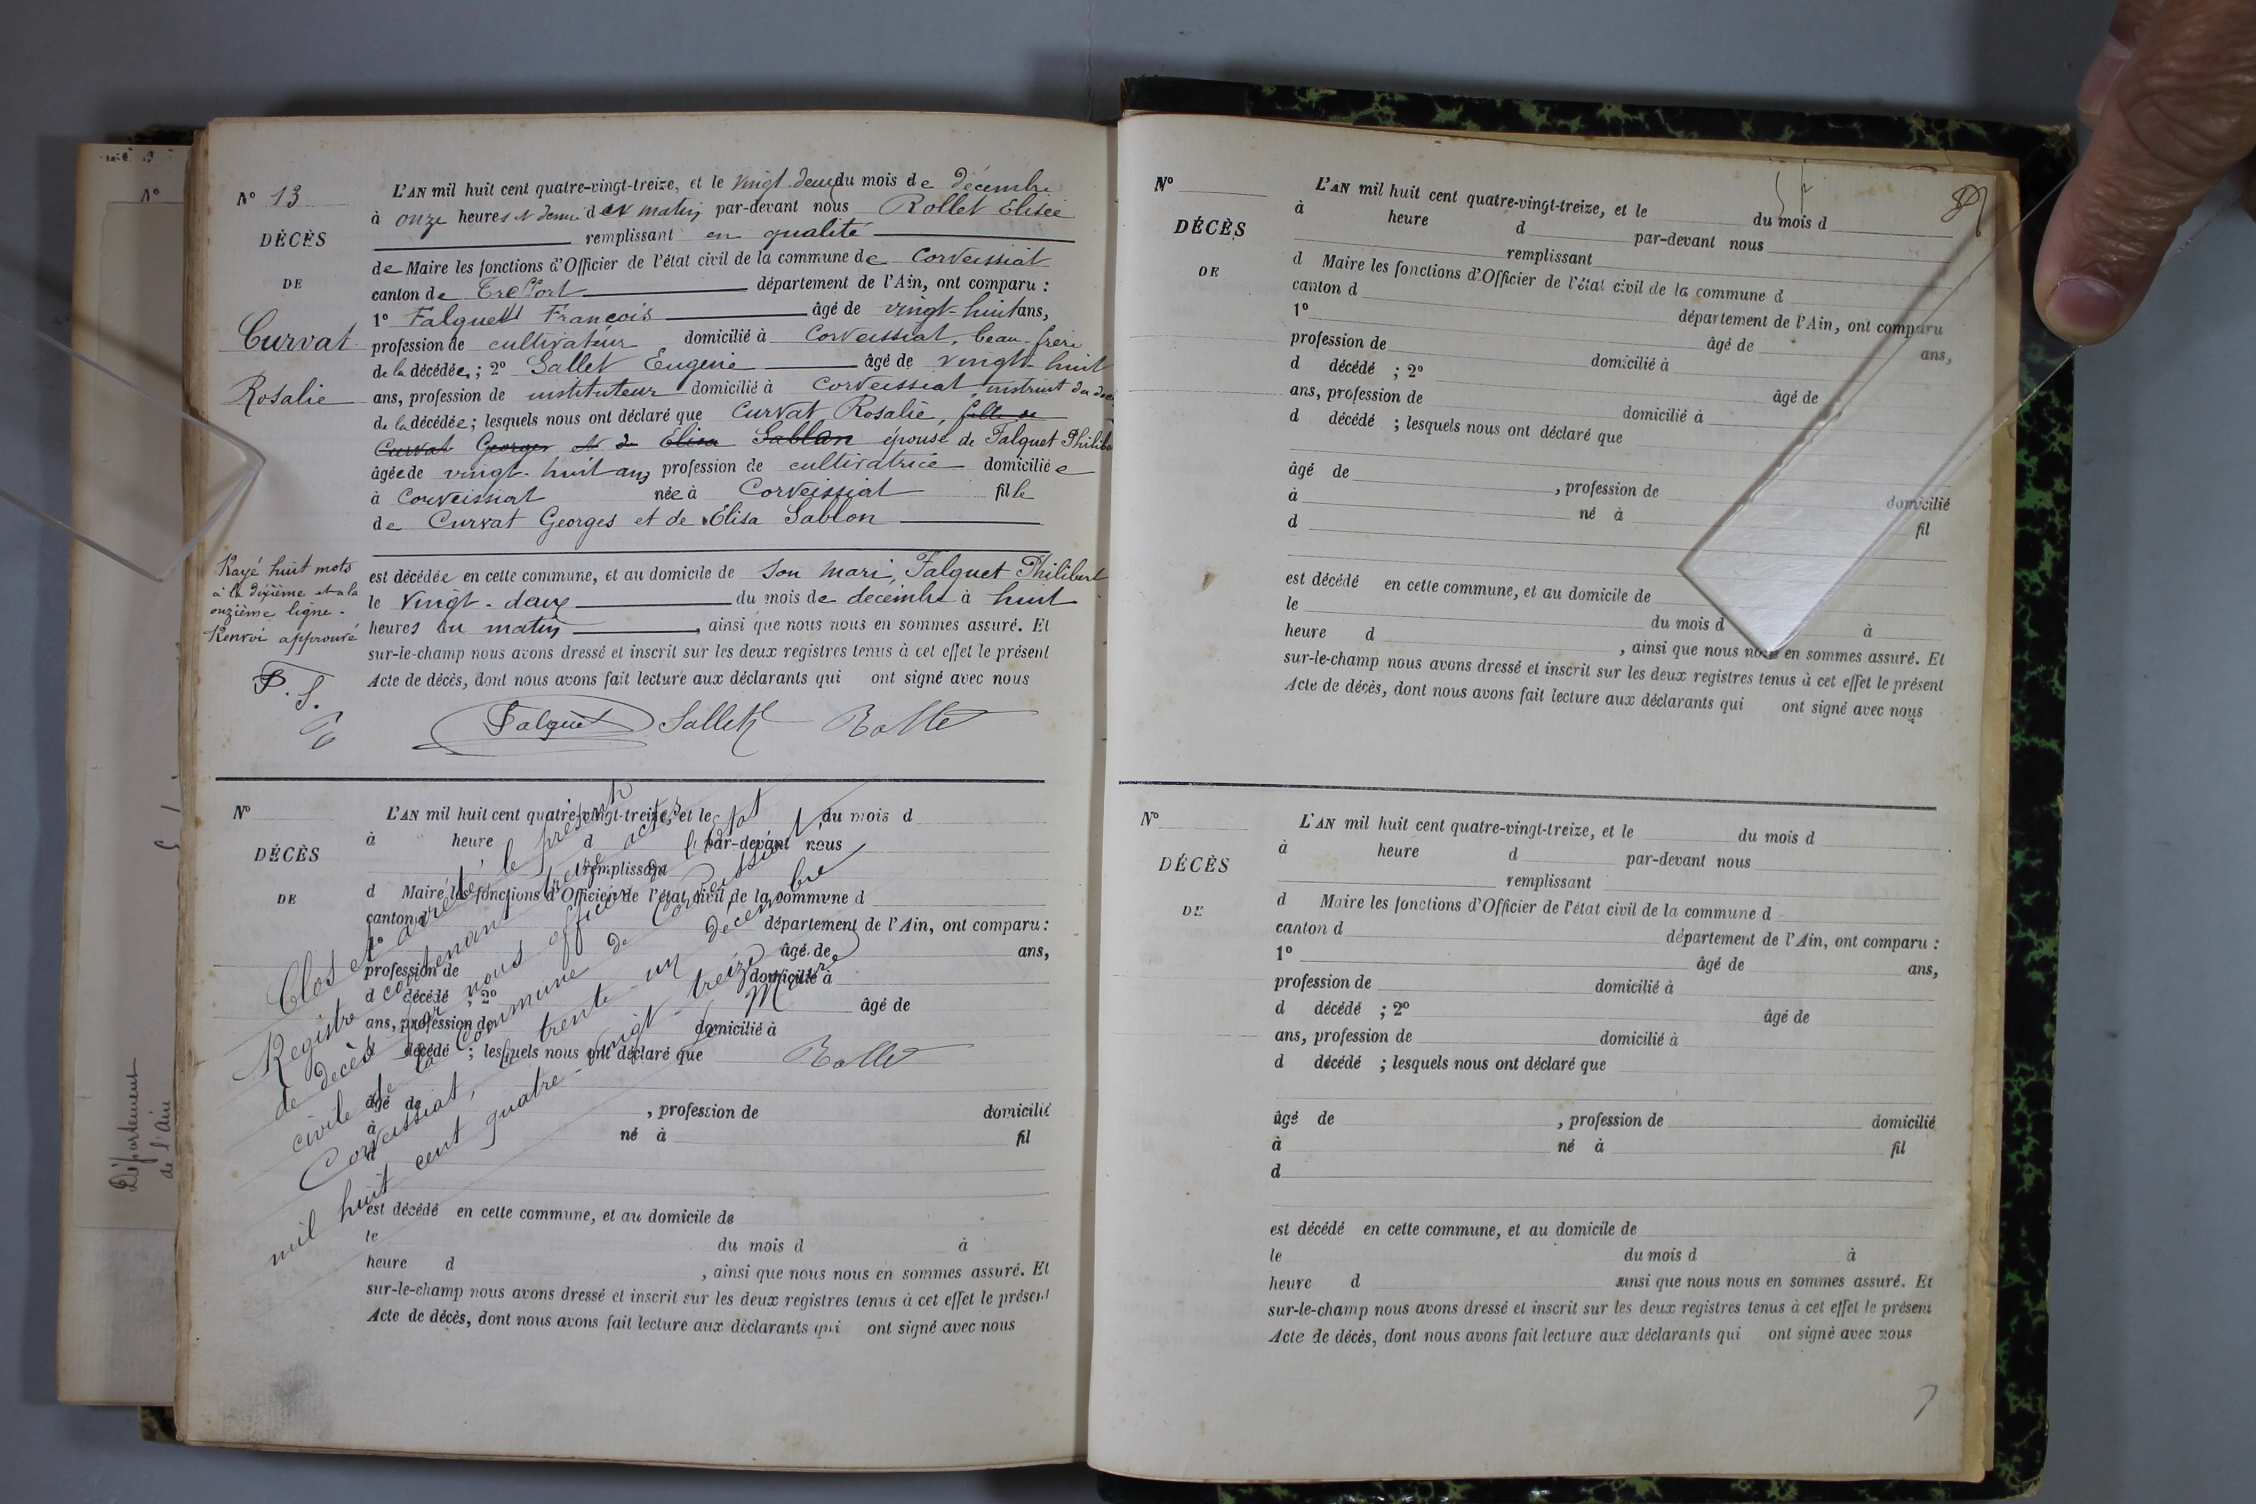 N° 13
DÉCÈS
DE
Curvat
Rosalie
L'AN mil huit cent quatre-vingt-treize, et le vingt deux du mois de décembre
à onze heures et demie du matin par-devant nous Rollet Elisée
remplissant en qualité
de Maire les fonctions d'Officier de l'état civil de la commune de Corveissiat
canton de Treffort département de l'Ain, ont comparu :
1° Falquet François âgé de vingt-huit ans,
profession de cultivateur domicilié à Corveissiat, beau-frère
de la décédée ; 2° Sallet Eugène âgé de vingt-huit
ans, profession de instituteur domicilié à Corveissiat,
de la décédée ; lesquels nous ont déclaré que Curvat Rosalie, fille de
Curvat Georges et de Élisa Sablon épouse de Falquet Philibert
âgée de vingt-huit ans profession de cultivatrice domiciliée
à Corveissiat née à Corveissiat fille
de Curvat Georges et de Élisa Sablon
Rayé huit mots
à la dixième et à la
onzième ligne.
Renvoi approuvé
est décédée en cette commune, et au domicile de son mari, Falquet Philibert
le vingt-deux du mois de décembre à huit
heures du matin, ainsi que nous nous en sommes assuré. Et
sur-le-champ nous avons dressé et inscrit sur les deux registres tenus à cet effet le présent
Acte de décès, dont nous avons fait lecture aux déclarants qui ont signé avec nous
Falquet Sallet Rollet
N°
DÉCÈS
DE
L'AN mil huit cent quatre-vingt-treize, et le du mois d
à heure d par-devant nous
remplissant
d Maire les fonctions d'Officier de l'état civil de la commune d
canton d département de l'Ain, ont comparu :
1° âgé de ans,
profession de domicilié à
d décédé ; 2° âgé de
ans, profession de domicilié à
d décédé ; lesquels nous ont déclaré que
âgé de , profession de domicilié
à né à fil
d
est décédé en cette commune, et au domicile de
le du mois d à
heure d , ainsi que nous nous en sommes assuré. Et
sur-le-champ nous avons dressé et inscrit sur les deux registres tenus à cet effet le présent
Acte de décès, dont nous avons fait lecture aux déclarants qui ont signé avec nous
Clos et arrêté le présent
Registre contenant treize actes
de décès par nous officier de l'état
civil de la commune de Corveissiat
Corveissiat, le trente-un décembre
mil huit cent quatre-vingt-treize
Le Maire
Rollet
Département
de l'Ain
N°
N°
DÉCÈS
DE
L'AN mil huit cent quatre-vingt-treize, et le du mois d
à heure d par-devant nous
remplissant
d Maire les fonctions d'Officier de l'état civil de la commune d
canton d département de l'Ain, ont comparu
1° âgé de ans,
profession de domicilié à
d décédé ; 2° âgé de
ans, profession de domicilié à
d décédé ; lesquels nous ont déclaré que
âgé de , profession de domicilié
à né à fil
d
est décédé en cette commune, et au domicile de
le du mois d à
heure d , ainsi que nous nous en sommes assuré. Et
sur-le-champ nous avons dressé et inscrit sur les deux registres tenus à cet effet le présent
Acte de décès, dont nous avons fait lecture aux déclarants qui ont signé avec nous
N°
DÉCÈS
DE
L'AN mil huit cent quatre-vingt-treize, et le du mois d
à heure d par-devant nous
remplissant
d Maire les fonctions d'Officier de l'état civil de la commune d
canton d département de l'Ain, ont comparu :
1° âgé de ans,
profession de domicilié à
d décédé ; 2° âgé de
ans, profession de domicilié à
d décédé ; lesquels nous ont déclaré que
âgé de , profession de domicilié
à né à fil
d
est décédé en cette commune, et au domicile de
le du mois d à
heure d ainsi que nous nous en sommes assuré. Et
sur-le-champ nous avons dressé et inscrit sur les deux registres tenus à cet effet le présent
Acte de décès, dont nous avons fait lecture aux déclarants qui ont signé avec nous